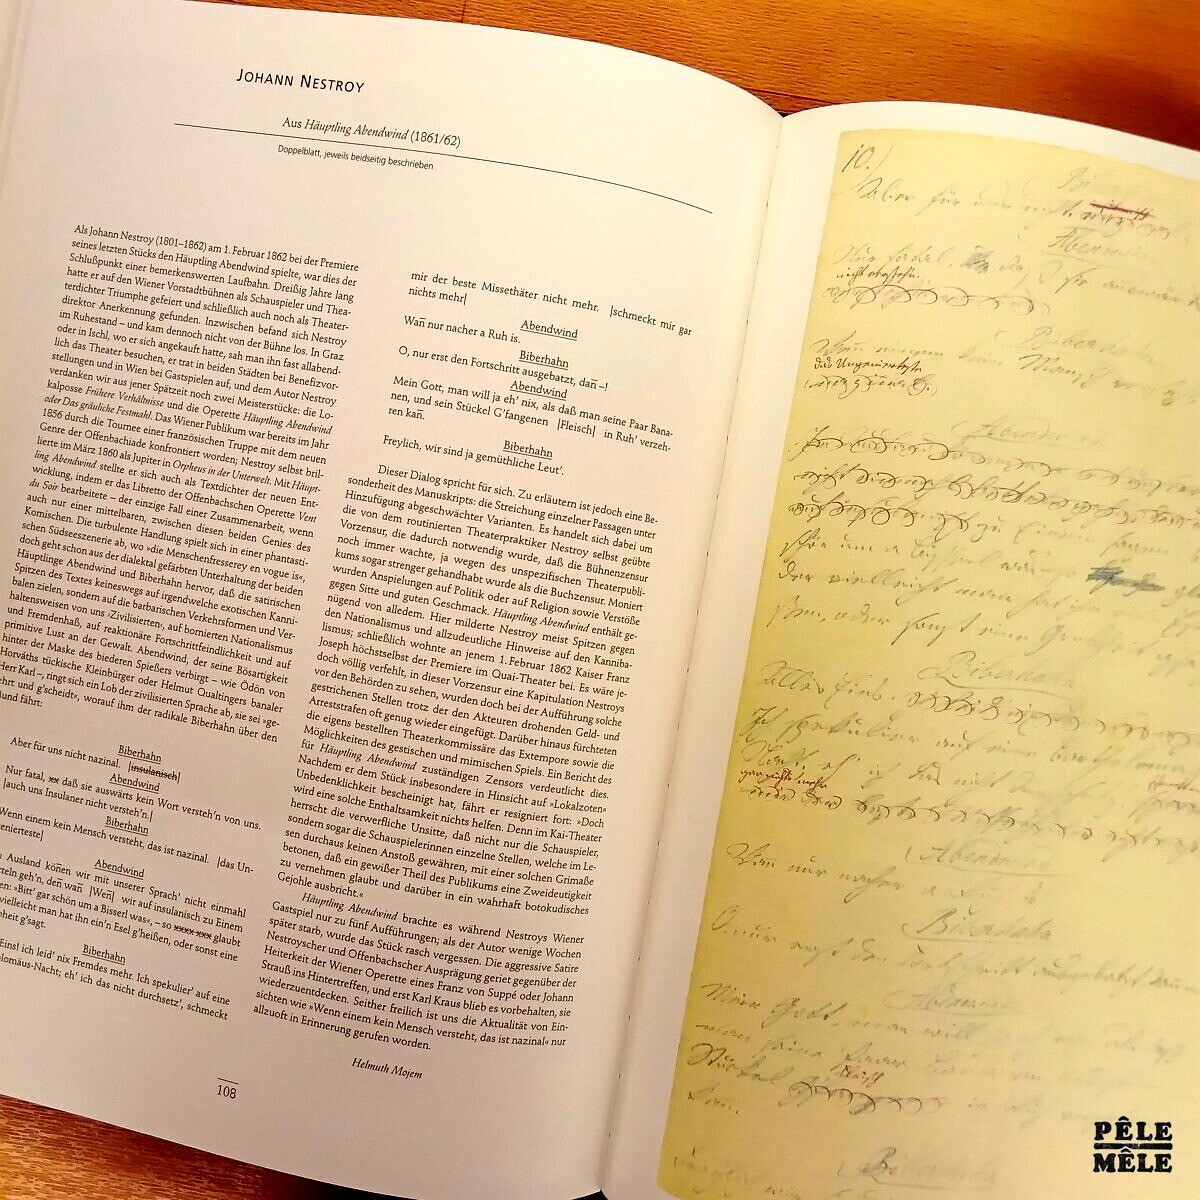 JOHANN NESTROY
Aus Häuptling Abendwind (1861/62)
Doppelblatt, jeweils beidseitig beschrieben
Als Johann Nestroy (1801–1862) am 1. Februar 1862 bei der Premiere
seines letzten Stücks den Häuptling Abendwind spielte, war dies der
Schlußpunkt einer bemerkenswerten Laufbahn. Dreißig Jahre lang
hatte er auf den Wiener Vorstadtbühnen als Schauspieler und Thea-
terdichter Triumphe gefeiert und schließlich auch noch als Theater-
direktor Anerkennung gefunden. Inzwischen befand sich Nestroy
im Ruhestand – und kam dennoch nicht von der Bühne los. In Graz
oder in Ischl, wo er sich angekauft hatte, sah man ihn fast allabend-
lich das Theater besuchen, er trat in beiden Städten bei Benefizvor-
stellungen und in Wien bei Gastspielen auf, und dem Autor Nestroy
verdanken wir aus jener Spätzeit noch zwei Meisterstücke: die Lo-
kalposse Frühere Verhältnisse und die Operette Häuptling Abendwind
oder Das gräuliche Festmahl. Das Wiener Publikum war bereits im Jahr
1856 durch die Tournee einer französischen Truppe mit dem neuen
Genre der Offenbachiade konfrontiert worden; Nestroy selbst bril-
lierte im März 1860 als Jupiter in Orpheus in der Unterwelt. Mit Häupt-
ling Abendwind stellte er sich auch als Textdichter der neuen Ent-
wicklung, indem er das Libretto der Offenbachschen Operette Vent
du Soir bearbeitete – der einzige Fall einer Zusammenarbeit, wenn
auch nur einer mittelbaren, zwischen diesen beiden Genies des
Komischen. Die turbulente Handlung spielt sich in einer phantasti-
schen Südseeszenerie ab, wo »die Menschenfresserey en vogue is«,
doch geht schon aus der dialektal gefärbten Unterhaltung der beiden
Häuptlinge Abendwind und Biberhahn hervor, daß die satirischen
Spitzen des Textes keineswegs auf irgendwelche exotischen Kanni-
balen zielen, sondern auf die barbarischen Verkehrsformen und Ver-
haltensweisen von uns ›Zivilisierten‹, auf bornierten Nationalismus
und Fremdenhaß, auf reaktionäre Fortschrittfeindlichkeit und auf
primitive Lust an der Gewalt. Abendwind, der seine Bösartigkeit
hinter der Maske des biederen Spießers verbirgt – wie Ödön von
Horváths tückische Kleinbürger oder Helmut Qualtingers banaler
Herr Karl –, ringt sich ein Lob der zivilisierten Sprache ab, sie sei »ge-
hrt und g'scheidt«, worauf ihm der radikale Biberhahn über den
Mund fährt:
Biberhahn
Aber für uns nicht nazinal. |insulanisch|
Abendwind
Nur fatal, xx daß sie auswärts kein Wort versteh'n von uns.
|auch uns Insulaner nicht versteh'n.|
Biberhahn
Wenn einem kein Mensch versteht, das ist nazinal. |das Un-
enierteste|
Abendwind
Ausland kön̄en wir mit unserer Sprach' nicht einmal
teln geh'n, den̄ wan̄ |Wen̄| wir auf insulanisch zu Einem
en: »Bitt' gar schön um a Bisserl was«, – so xxxx xxx glaubt
vielleicht man hat ihn ein'n Esel g'heißen, oder sonst eine
oheit g'sagt.
Biberhahn
Eins! ich leid' nix Fremdes mehr. Ich spekulier' auf eine
olomäus-Nacht; eh' ich das nicht durchsetz', schmeckt
mir der beste Missethäter nicht mehr. |schmeckt mir gar
nichts mehr|
Abendwind
Wan̄ nur nacher a Ruh is.
Biberhahn
O, nur erst den Fortschritt ausgebatzt, dan̄ –!
Abendwind
Mein Gott, man will ja eh' nix, als daß man seine Paar Bana-
nen, und sein Stückel G'fangenen |Fleisch| in Ruh' verzeh-
ren kan̄.
Biberhahn
Freylich, wir sind ja gemüthliche Leut'.
Dieser Dialog spricht für sich. Zu erläutern ist jedoch eine Be-
sonderheit des Manuskripts: die Streichung einzelner Passagen unter
Hinzufügung abgeschwächter Varianten. Es handelt sich dabei um
die von dem routinierten Theaterpraktiker Nestroy selbst geübte
Vorzensur, die dadurch notwendig wurde, daß die Bühnenzensur
noch immer wachte, ja wegen des unspezifischen Theaterpubli-
kums sogar strenger gehandhabt wurde als die Buchzensur. Moniert
wurden Anspielungen auf Politik oder auf Religion sowie Verstöße
gegen Sitte und guten Geschmack. Häuptling Abendwind enthält ge-
nügend von alledem. Hier milderte Nestroy meist Spitzen gegen
den Nationalismus und allzudeutliche Hinweise auf den Kanniba-
lismus; schließlich wohnte an jenem 1. Februar 1862 Kaiser Franz
Joseph höchstselbst der Premiere im Quai-Theater bei. Es wäre je-
doch völlig verfehlt, in dieser Vorzensur eine Kapitulation Nestroys
vor den Behörden zu sehen, wurden doch bei der Aufführung solche
gestrichenen Stellen trotz der den Akteuren drohenden Geld- und
Arreststrafen oft genug wieder eingefügt. Darüber hinaus fürchteten
die eigens bestellten Theaterkommissäre das Extempore sowie die
Möglichkeiten des gestischen und mimischen Spiels. Ein Bericht des
für Häuptling Abendwind zuständigen Zensors verdeutlicht dies.
Nachdem er dem Stück insbesondere in Hinsicht auf »Lokalzoten«
Unbedenklichkeit bescheinigt hat, fährt er resigniert fort: »Doch
wird eine solche Enthaltsamkeit nichts helfen. Denn im Kai-Theater
herrscht die verwerfliche Unsitte, daß nicht nur die Schauspieler,
sondern sogar die Schauspielerinnen einzelne Stellen, welche im Le-
sen durchaus keinen Anstoß gewähren, mit einer solchen Grimaße
betonen, daß ein gewißer Theil des Publikums eine Zweideutigkeit
zu vernehmen glaubt und darüber in ein wahrhaft botokudisches
Gejohle ausbricht.«
Häuptling Abendwind brachte es während Nestroys Wiener
Gastspiel nur zu fünf Aufführungen; als der Autor wenige Wochen
später starb, wurde das Stück rasch vergessen. Die aggressive Satire
Nestroyscher und Offenbachscher Ausprägung geriet gegenüber der
Heiterkeit der Wiener Operette eines Franz von Suppé oder Johann
Strauß ins Hintertreffen, und erst Karl Kraus blieb es vorbehalten, sie
wiederzuentdecken. Seither freilich ist uns die Aktualität von Ein-
sichten wie »Wenn einem kein Mensch versteht, das ist nazinal« nur
allzuoft in Erinnerung gerufen worden.
Helmuth Mojem
108
10.)
Biberhahn
Aber für uns nicht
Abendwind
nicht versteh'n
Biberhahn
das Ungenierteste
Abendwind
Biberhahn
Abendwind
Wan̄ nur nacher a Ruh is
Biberhahn
O, nur erst den Fortschritt ausgebatzt dan̄
Abendwind
Mein Gott, man will
Fleisch
Biberhahn
PÊLE
MÊLE